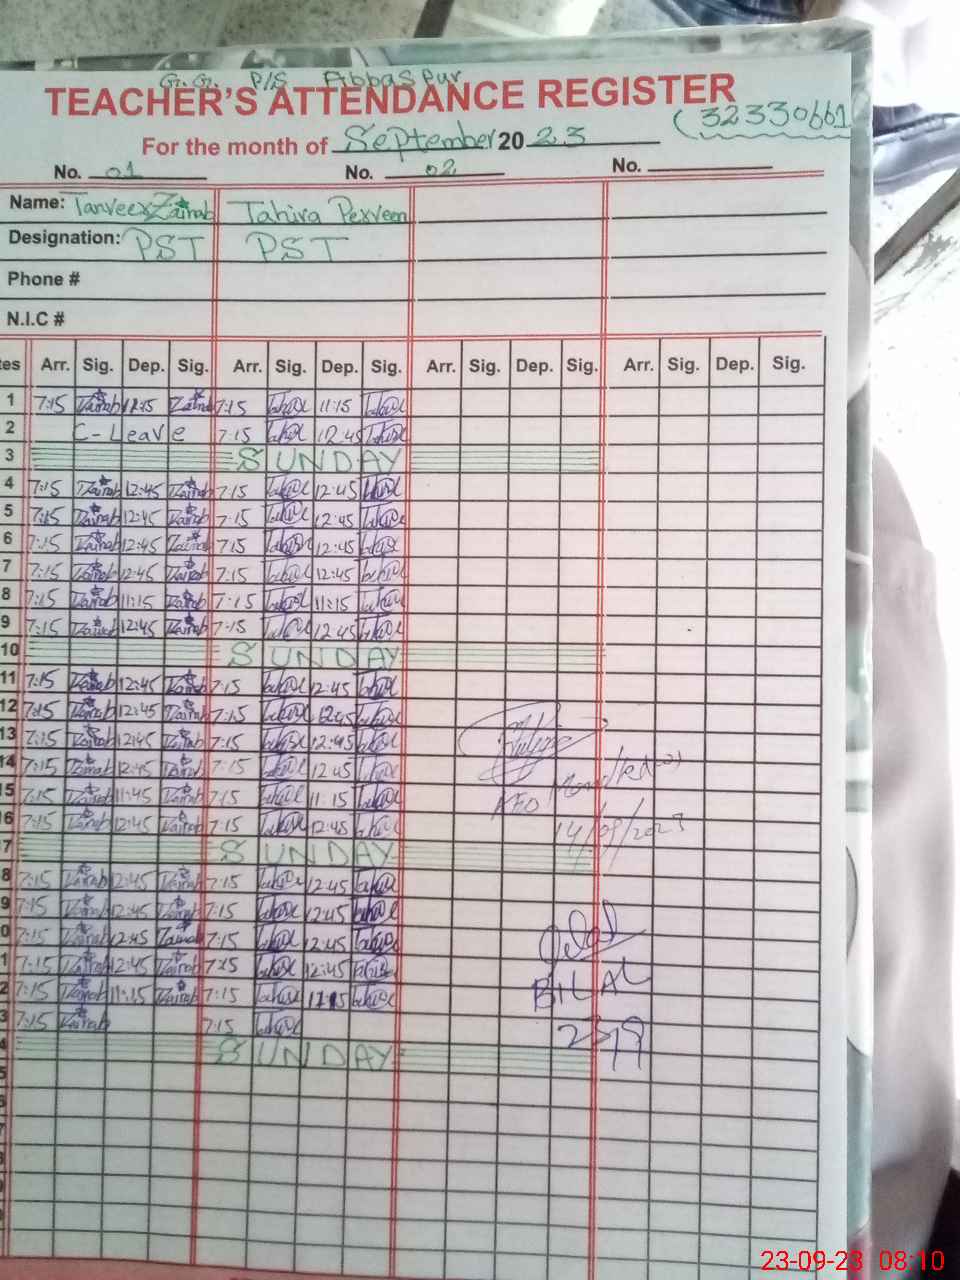 G.G. P/S Abbaspur
TEACHER'S ATTENDANCE REGISTER
(32330661
For the month of September 2023
No. 01 No. 02 No.
Name: Tanveer Zainab Tahira Perveen
Designation: PST PST
Phone #
N.I.C #
tes Arr. Sig. Dep. Sig. Arr. Sig. Dep. Sig. Arr. Sig. Dep. Sig. Arr. Sig. Dep. Sig.
1 7:15 Zainab 11:15 Zainab 7:15 11:15
2 C-Leave 7:15 12:45
3 SUNDAY
4 7:15 Zainab 12:45 Zainab 7:15 12:45
5 7:15 Zainab 12:45 Zainab 7:15 12:45
6 7:15 Zainab 12:45 Zainab 7:15 12:45
7 7:15 Zainab 12:45 Zainab 7:15 12:45
8 7:15 Zainab 11:15 Zainab 7:15 11:15
9 7:15 Zainab 12:45 Zainab 7:15 12:45
10 SUNDAY
11 7:15 Zainab 12:45 Zainab 7:15 12:45
12 7:15 Zainab 12:45 Zainab 7:15 12:45
13 7:15 Zainab 12:45 Zainab 7:15 12:45
14 7:15 Zainab 12:45 Zainab 7:15 12:45
AEO
15 7:15 Zainab 11:45 Zainab 7:15 11:15
16 7:15 Zainab 12:45 Zainab 7:15 12:45
14/09/2023
7 SUNDAY
8 7:15 Zainab 12:45 Zainab 7:15 12:45
9 7:15 Zainab 12:45 Zainab 7:15 12:45
0 7:15 Zainab 12:45 Zainab 7:15 12:45
1 7:15 Zainab 12:45 Zainab 7:15 12:45
BILAL
2 7:15 Zainab 11:15 Zainab 7:15 11:15
3 7:15 Zainab 7:15
4 SUNDAY
5
6
7
8
9
23-09-23 08:10